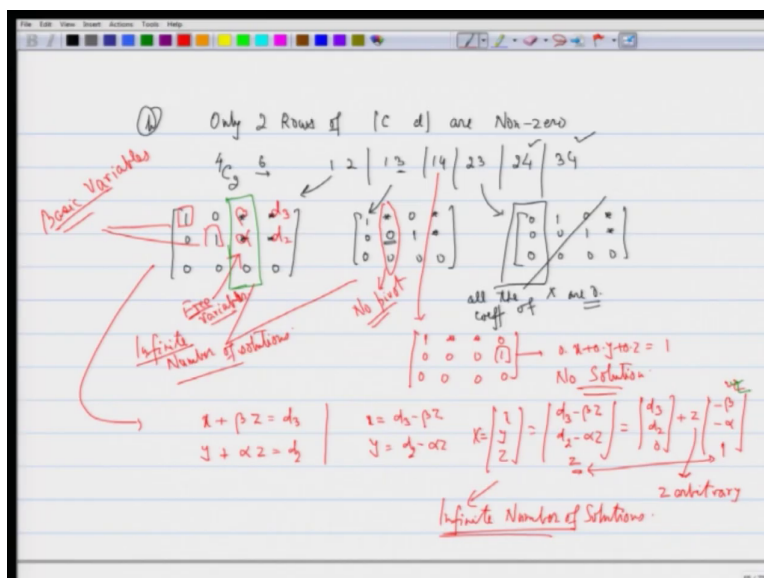 File Edit View Insert Actions Tools Help
Only 2 Rows of [C d] are Non-zero
⁴C₂ → 6
1 2 | 1 3 | 14 | 23 | 24 ✓ | 34 ✓
Basic Variables
1 0 β d₃
0 1 α d₂
0 0 0 0
1 * 0 *
0 0 1 *
0 0 0 0
0 1 0 *
0 0 1 *
0 0 0 0
Free variables
No pivot
all the coeff of x are 0.
Infinite Number of solutions
1 * * 0
0 0 0 1 → 0.x+0.y+0.z = 1
0 0 0 0
No Solution
x + βz = d₃
y + αz = d₂
x = d₃-βz
y = d₂-αz
X = [x y z] = [d₃-βz d₂-αz z] = [d₃ d₂ 0] + z [-β -α 1]
z arbitrary
Infinite Number of Solutions.